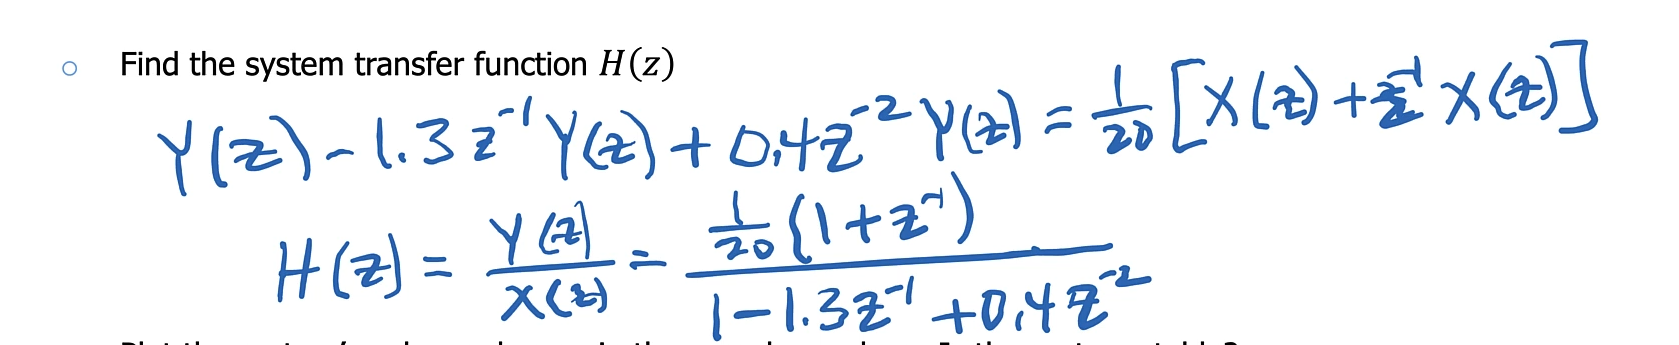 Find the system transfer function H(z)
Y(z) - 1.3 z⁻¹ Y(z) + 0.4 z⁻² Y(z) = 1/20 [X(z) + z⁻¹ X(z)]
H(z) = Y(z)/X(z) = 1/20 (1 + z⁻¹) / 1 - 1.3z⁻¹ + 0.4z⁻²